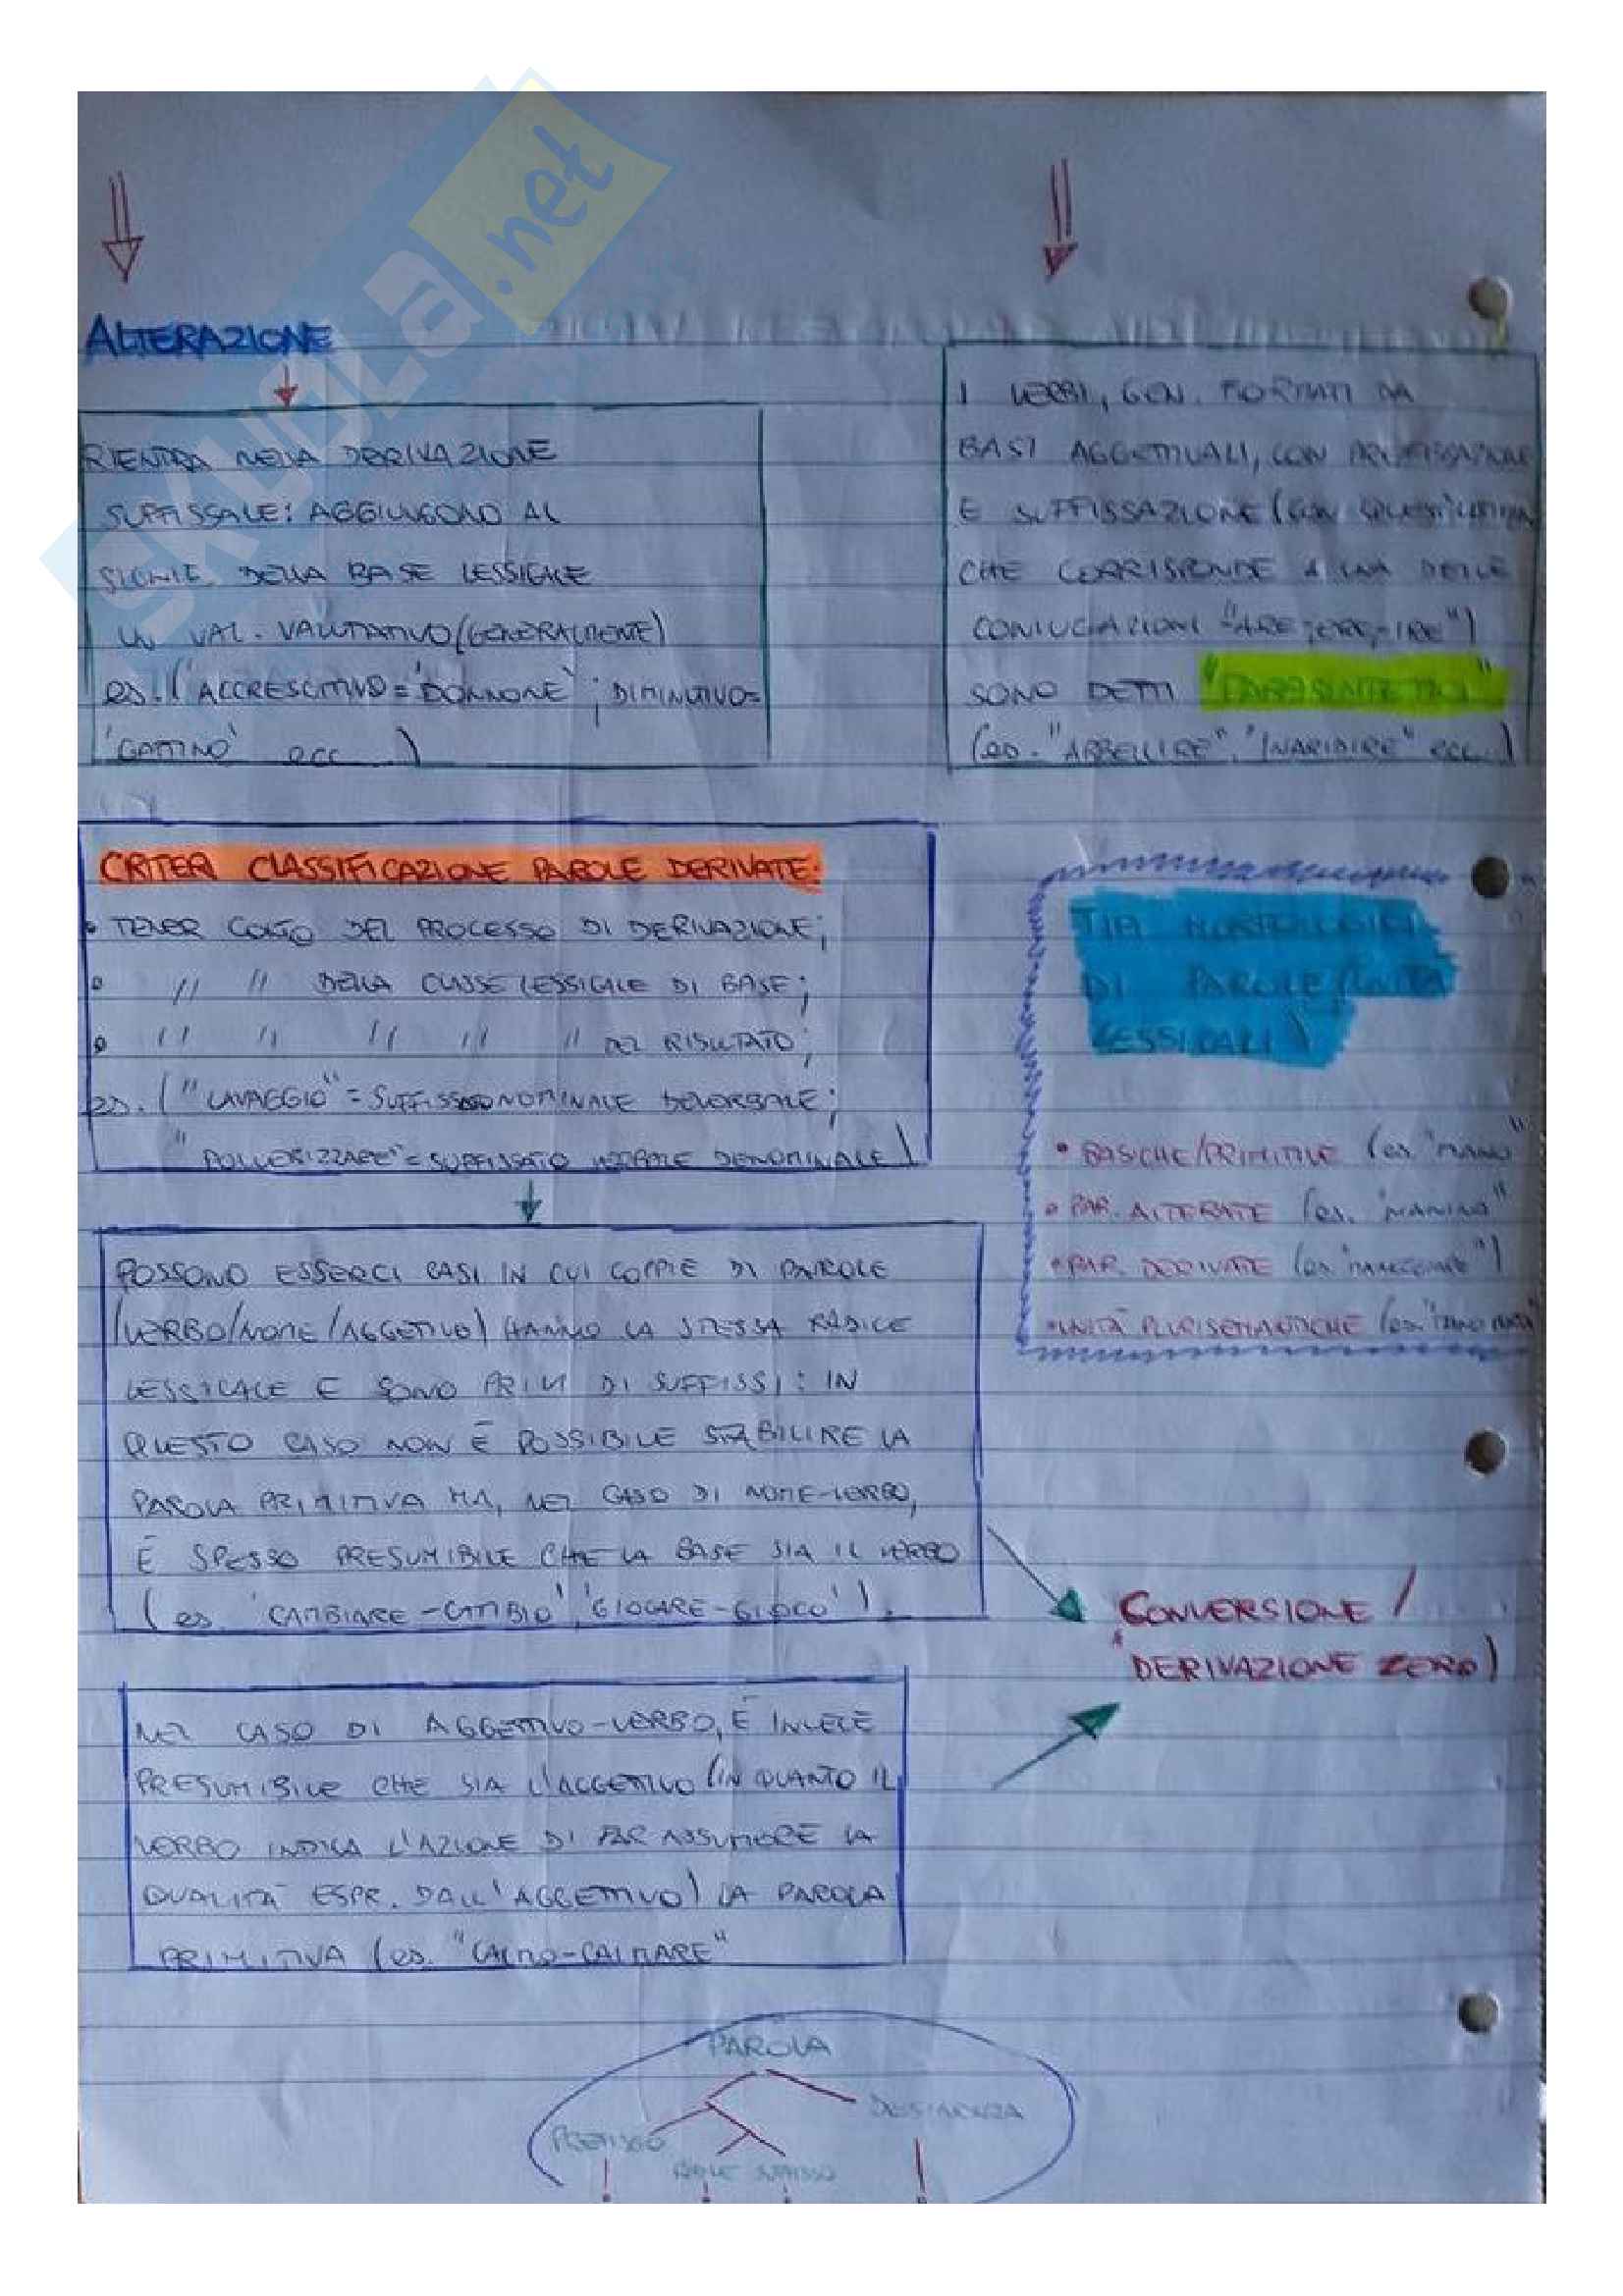 SKUOLA.net
ALTERAZIONE
RIENTRA NELLA DERIVAZIONE
SUFFISSALE: AGGIUNGONO AL
SIGNIF. DELLA BASE LESSICALE
UN VAL. VALUTATIVO (GENERALMENTE)
es. ('ACCRESCITIVO = 'DONNONE' ; DIMINUTIVO =
'GATTINO' ecc...)
I VERBI, GEN. FORMATI DA
BASI AGGETTIVALI, CON PREFISSAZIONE
E SUFFISSAZIONE (CON QUEST'ULTIMA
CHE CORRISPONDE A UNA DELLE
CONIUGAZIONI "-ARE; -ERE; -IRE")
SONO DETTI "PARASINTETICI"
(es. "ABBELLIRE", "INARIDIRE" ecc..)
CRITERI CLASSIFICAZIONE PAROLE DERIVATE:
• TENER CONTO DEL PROCESSO DI DERIVAZIONE;
• // // DELLA CLASSE LESSICALE DI BASE;
• // // // // // DEL RISULTATO;
es. ("LAVAGGIO" = SUFFISSATO NOMINALE DEVERBALE;
"POLVERIZZARE" = SUFFISSATO VERBALE DENOMINALE)
TIPI MORFOLOGICI
DI PAROLE (UNITÀ
LESSICALI)
• BASICHE/PRIMITIVE (es. "MANO"
• PAR. ALTERATE (es. "MANINA"
• PAR. DERIVATE (es. "MANEGGIARE")
• UNITÀ PLURISEMANTICHE (es.
POSSONO ESSERCI CASI IN CUI COPPIE DI PAROLE
(VERBO/NOME/AGGETIVO) HANNO LA STESSA RADICE
LESSICALE E SONO PRIVI DI SUFFISSI: IN
QUESTO CASO NON È POSSIBILE STABILIRE LA
PAROLA PRIMITIVA MA, NEL CASO DI NOME-VERBO,
È SPESSO PRESUMIBILE CHE LA BASE SIA IL VERBO
(es. 'CAMBIARE-CAMBIO', 'GIOCARE-GIOCO').
CONVERSIONE /
DERIVAZIONE ZERO)
NEL CASO DI AGGETTIVO-VERBO, È INVECE
PRESUMIBILE CHE SIA L'AGGETTIVO (IN QUANTO IL
VERBO INDICA L'AZIONE DI FAR ASSUMERE LA
QUALITÀ ESPR. DALL'AGGETTIVO) LA PAROLA
PRIMITIVA (es. "CALMO-CALMARE"
PAROLA
DESINENZA
PREFISSO
SUFFISSO